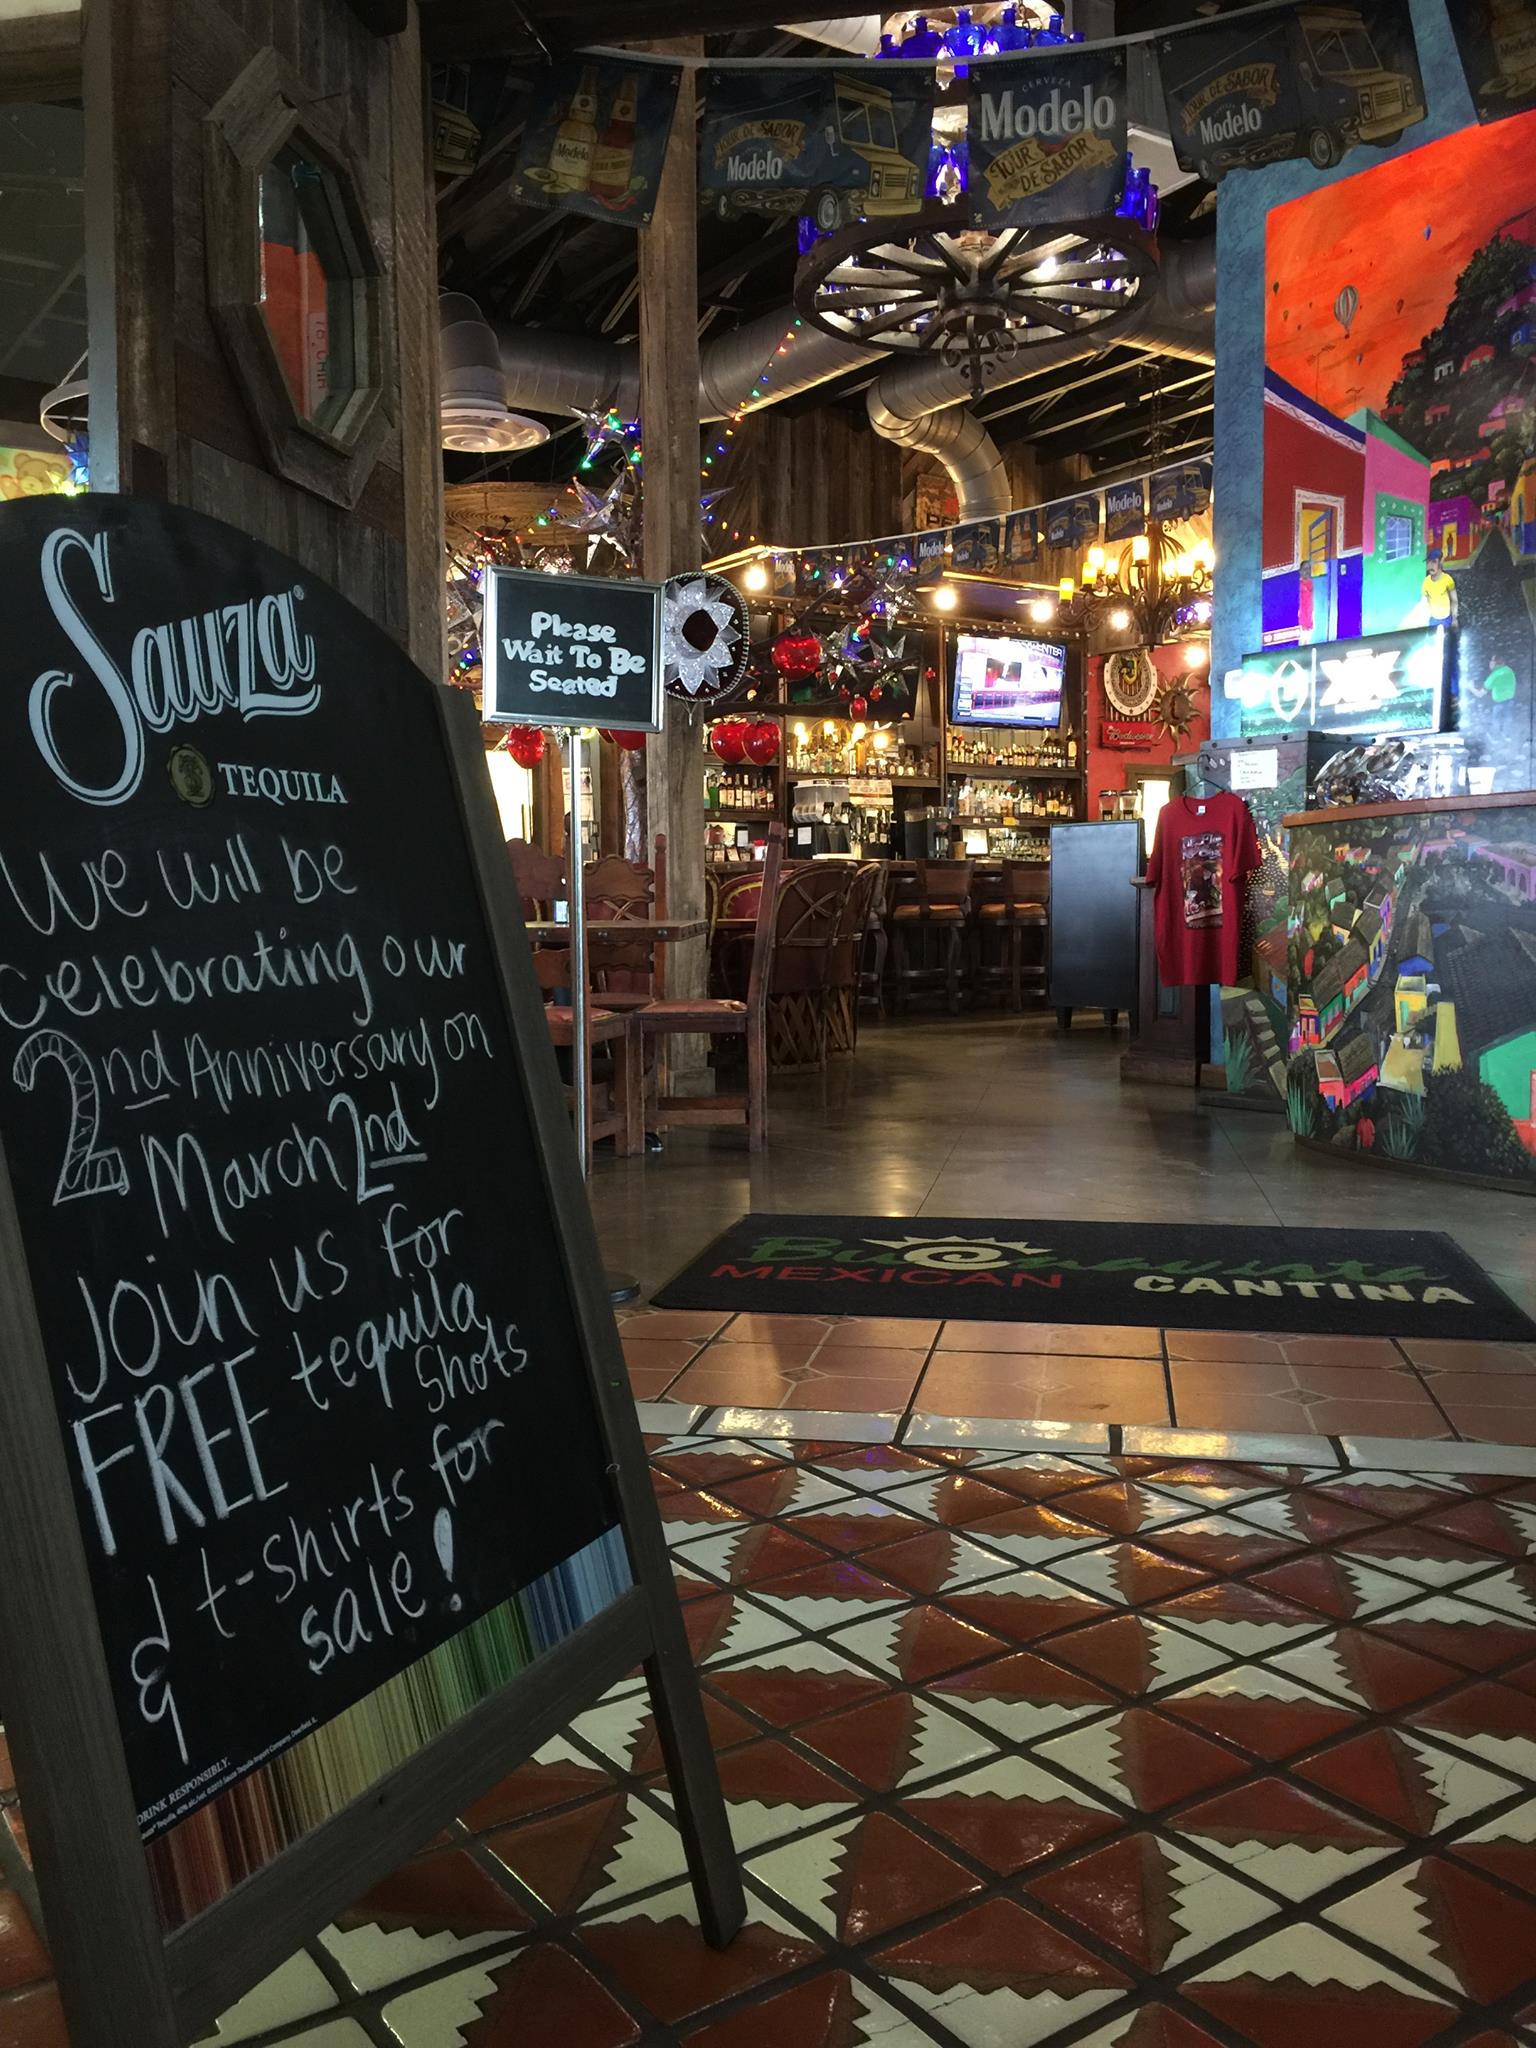 CERVEZA
Modelo
TOUR
DE SABOR
TOUR DE SABOR
Modelo
TOUR DE SABOR
Modelo
Modelo
Modelo
Modelo
Please
Wait To Be
Seated
Sauza®
TEQUILA
We will be
celebrating our
2nd Anniversary on
March 2nd
Join us for
FREE tequila
shots
& t-shirts for
sale!
DRINK RESPONSIBLY.
Budweiser
XX
Buenavista
MEXICAN CANTINA